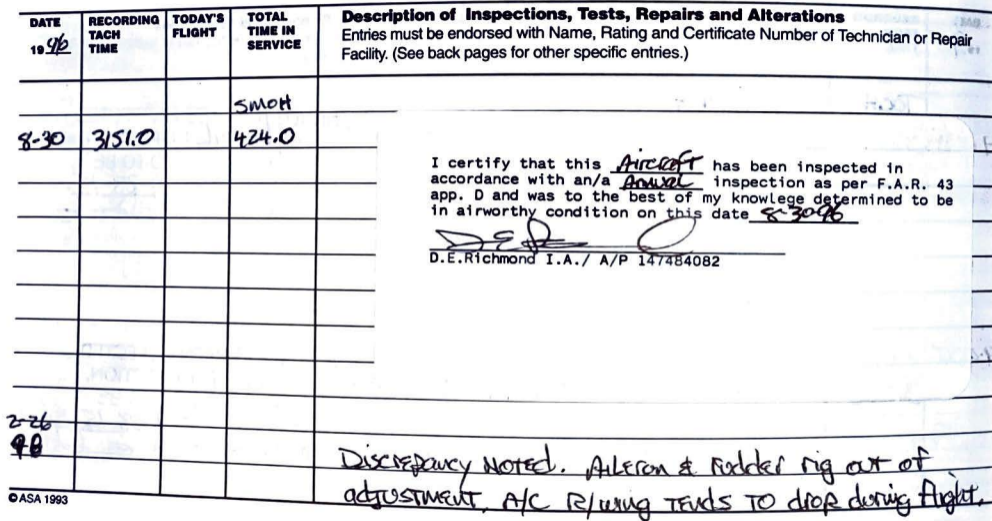 DATE RECORDING TODAY'S TOTAL Description of Inspections, Tests, Repairs and Alterations
19 96 TACH FLIGHT TIME IN Entries must be endorsed with Name, Rating and Certificate Number of Technician or Repair
TIME SERVICE Facility. (See back pages for other specific entries.)
SMOH
8-30 3151.0 424.0
I certify that this Aircraft has been inspected in
accordance with an/a Annual inspection as per F.A.R. 43
app. D and was to the best of my knowlege determined to be
in airworthy condition on this date 8-30-96
D.E.Richmond I.A./ A/P 147484082
2-26
98
Discrepancy Noted. Aileron & Rudder rig out of
adjustment, A/C R/wing TENDS TO drop during flight.
©ASA 1993